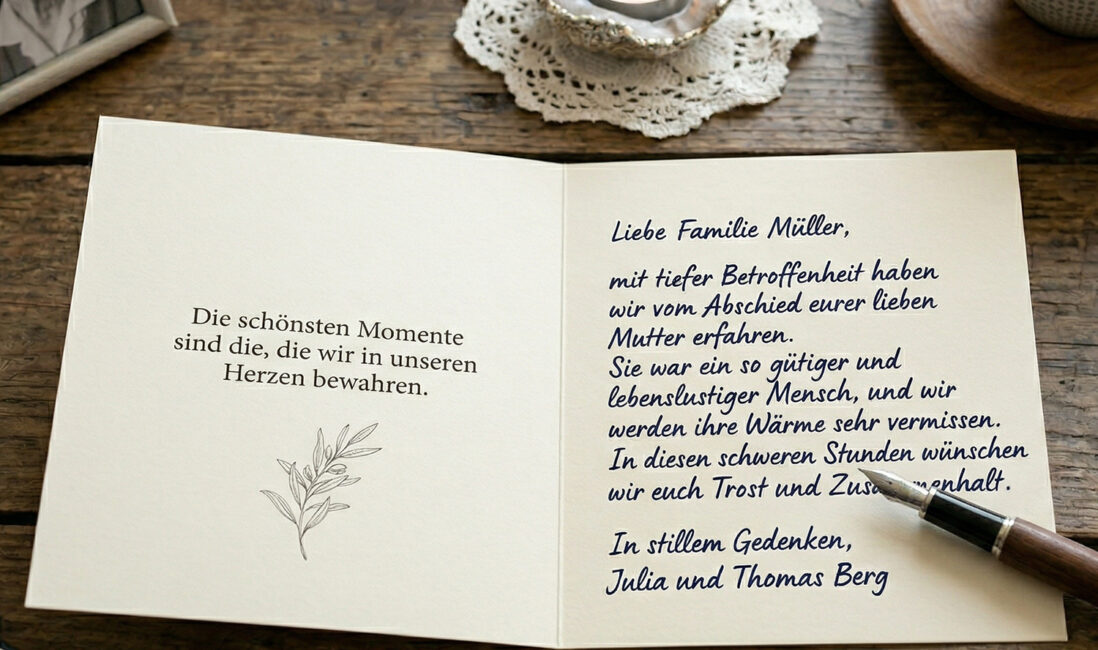 Die schönsten Momente
sind die, die wir in unseren
Herzen bewahren.
Liebe Familie Müller,
mit tiefer Betroffenheit haben
wir vom Abschied eurer lieben
Mutter erfahren.
Sie war ein so gütiger und
lebenslustiger Mensch, und wir
werden ihre Wärme sehr vermissen.
In diesen schweren Stunden wünschen
wir euch Trost und Zusammenhalt.
In stillem Gedenken,
Julia und Thomas Berg